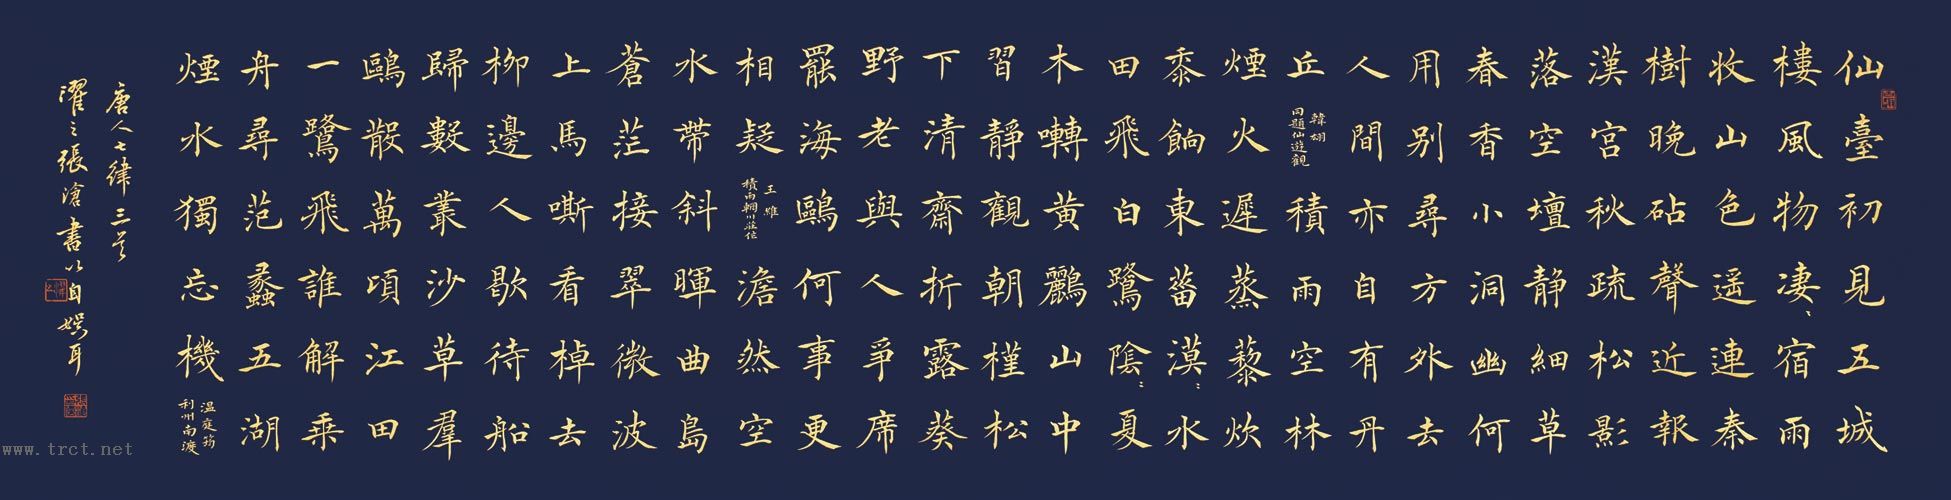 仙臺初見五城
樓風物凄〻宿雨
收山色遥連秦
樹晚砧聲近報
漢宮秋疏松影
落空壇静細草
春香小洞幽何
用别尋方外去
人間亦自有丹
丘
韓翃
同題仙遊觀
積雨空林
煙火遲蒸藜炊
黍餉東菑漠〻水
田飛白鷺陰〻夏
木囀黄鸝山中
習靜觀朝槿松
下清齋折露葵
野老與人爭席
罷海鷗何事更
相疑
王維
積雨輞川莊作
澹然空
水帶斜暉曲島
蒼茫接翠微波
上馬嘶看棹去
柳邊人歇待船
歸數叢沙草羣
鷗散萬頃江田
一鷺飛誰解乘
舟尋范蠡五湖
煙水獨忘機
温庭筠
利州南渡
唐人七律三首
濯之張滄書以自娛耳
www.trct.net